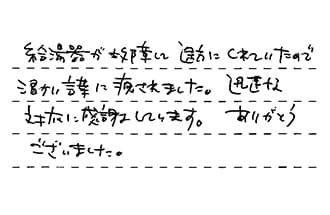 給湯器が故障して 途方にくれていたので
温かい言葉に癒されました。 迅速な
対応に感謝しています。 ありがとう
ございました。